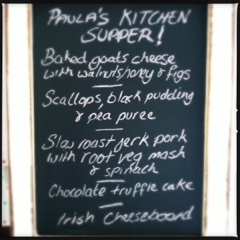 PAULA'S KITCHEN
SUPPER!
Baked goats cheese
with walnuts, honey & figs
Scallops, black pudding
& pea puree
Slow roast jerk pork
with root veg mash
& spinach
Chocolate truffle cake
Irish Cheeseboard